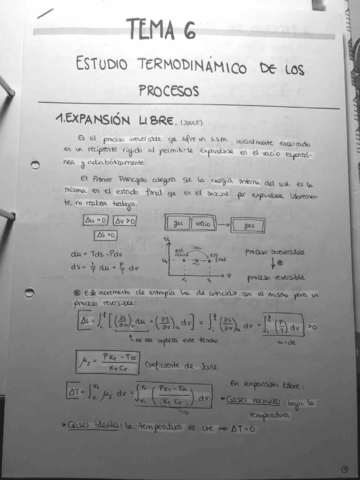 TEMA 6
ESTUDIO TERMODINÁMICO DE LOS
PROCESOS
1. EXPANSIÓN LIBRE. (JOULE)
Es el proceso irreversible que sufre un s.s.m. inicialmente encerrado
en un recipiente rígido al permitirle expandirse en el vacío espontá-
nea y adiabáticamente.
El Primer Principio asegura que la energía interna del sist. es la
misma en el estado final que en el inicial por expandirse libremen-
te, no realiza trabajo.
Δu = 0 Δv > 0
gas vacío → gas
ΔS > 0
du = Tds - Pdv
ds = 1/T du + P/T dv
proceso irreversible
proceso reversible
⊛ El incremento de entropía ha de coincidir con el mismo para un
proceso reversible:
Δs = ∫ [(∂s/∂u)v du + (∂s/∂v)u dv] = ∫ (∂s/∂v)u dv = ∫ (P/T) dv > 0
no nos importa este término
u = cte
μJ = (P KT - Tα)/(KT Cv) Coeficiente de Joule
ΔT = ∫ μJ dv = ∫ ((P KT - Tα)/(KT Cv)) dv
En expansión libre:
* Gases normales: baja la
temperatura
* Gases ideales: la temperatura es cte → ΔT = 0